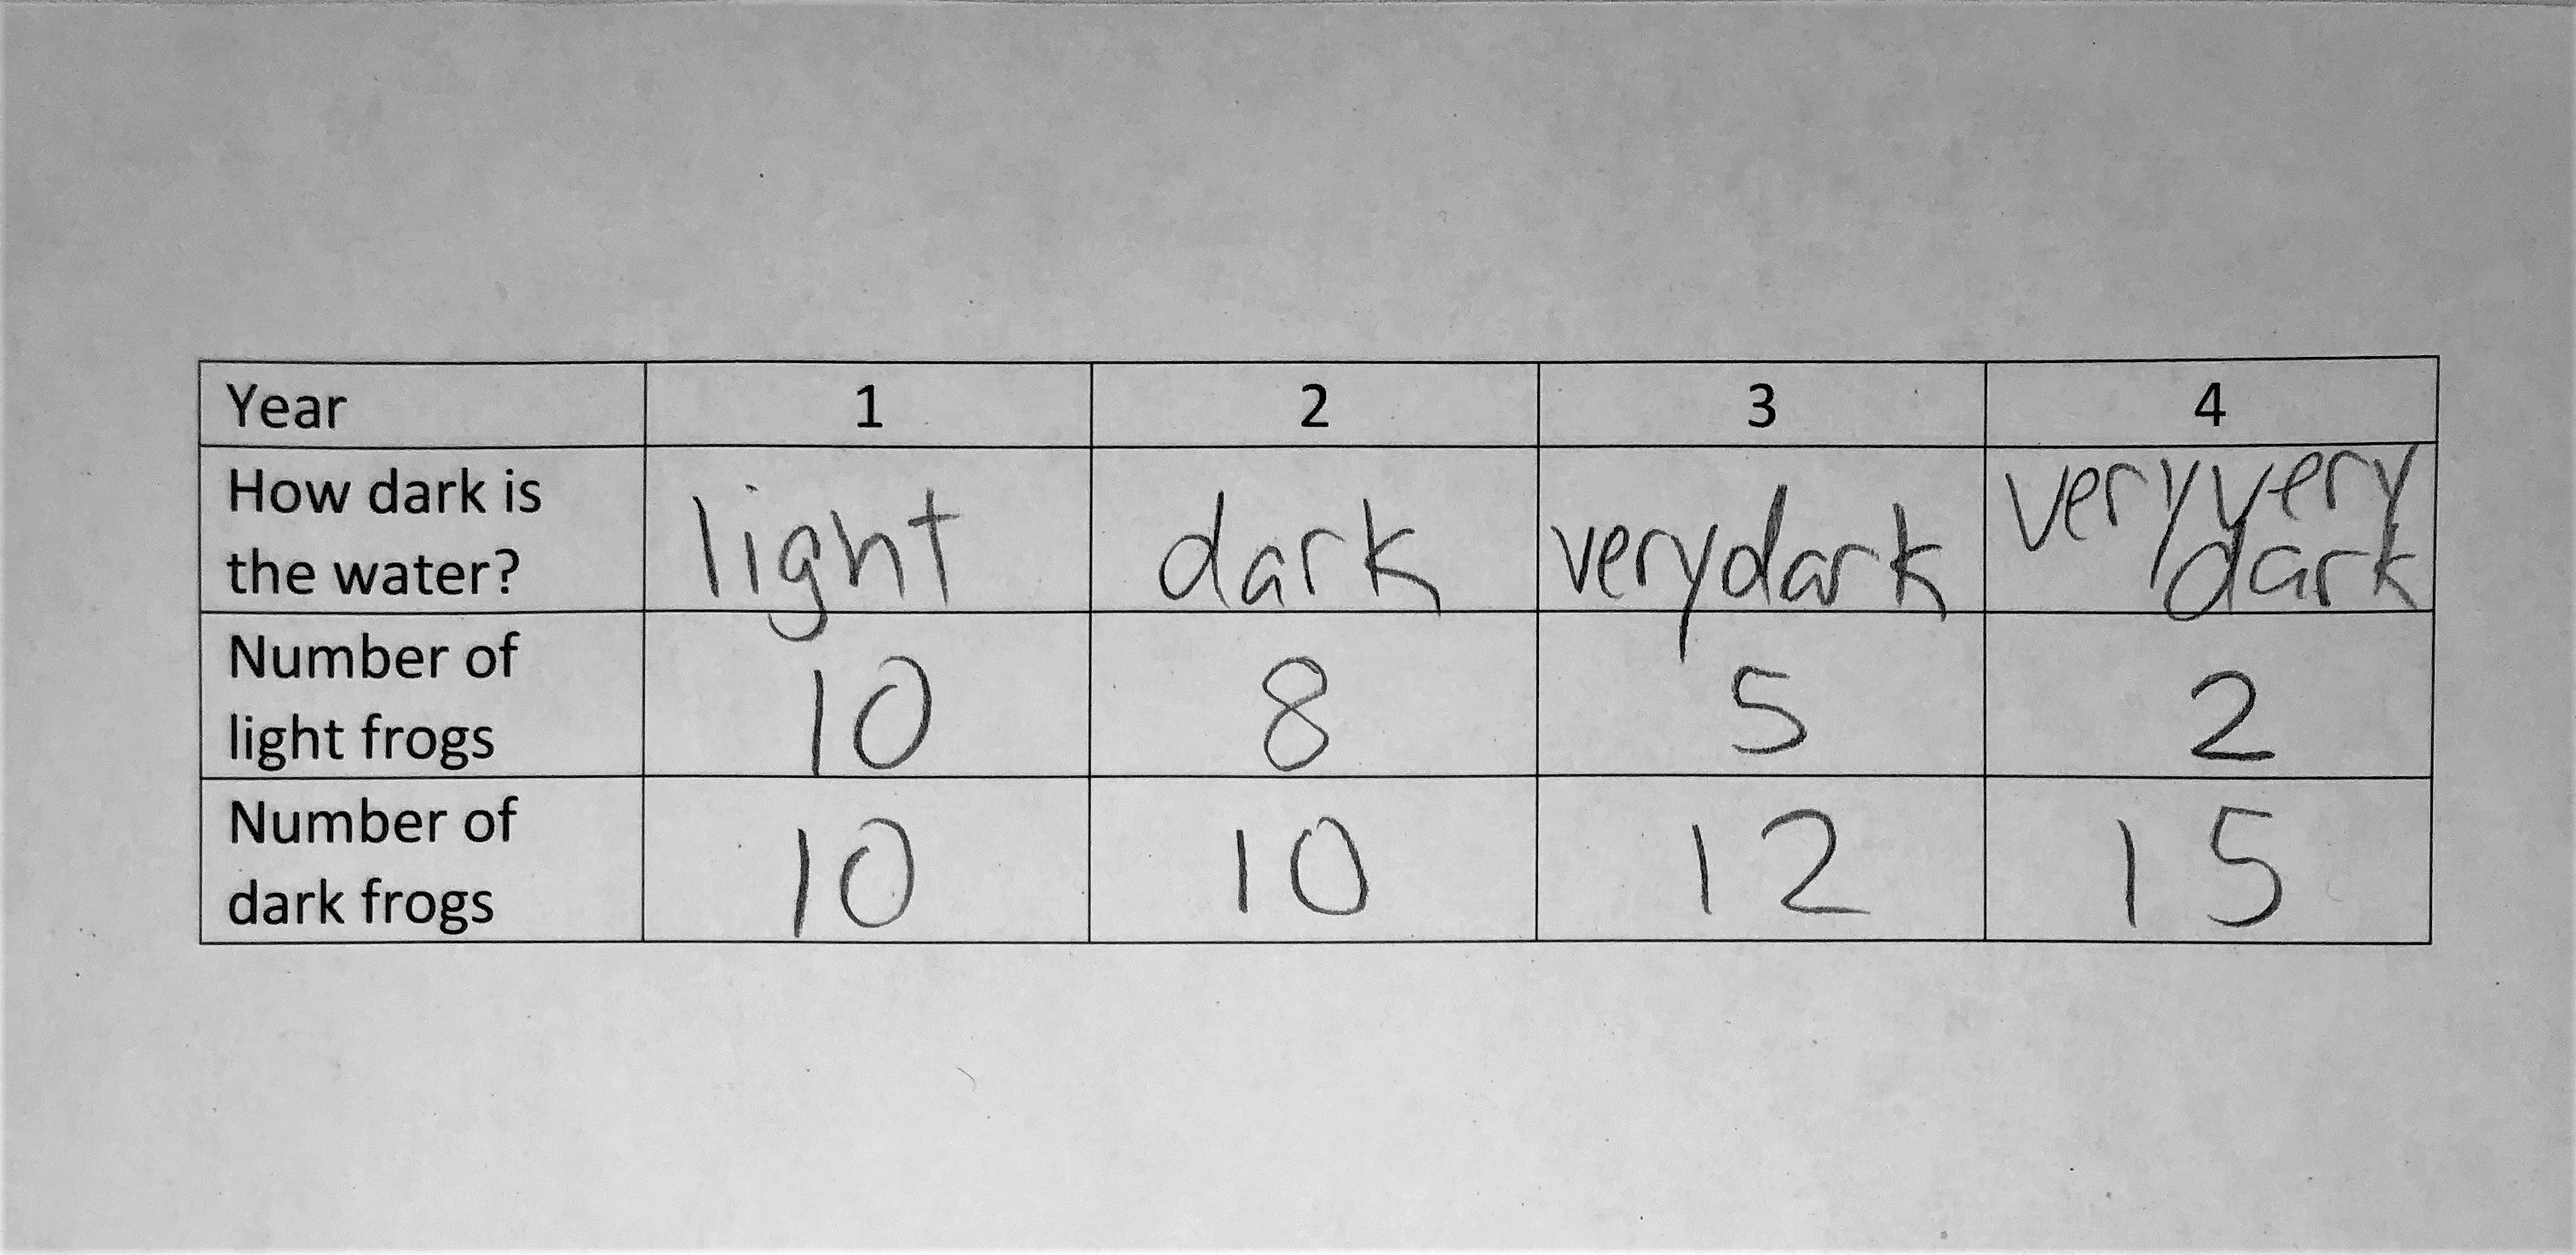 Year 1 2 3 4
How dark is
the water? light dark very dark very very
dark
Number of
light frogs 10 8 5 2
Number of
dark frogs 10 10 12 15